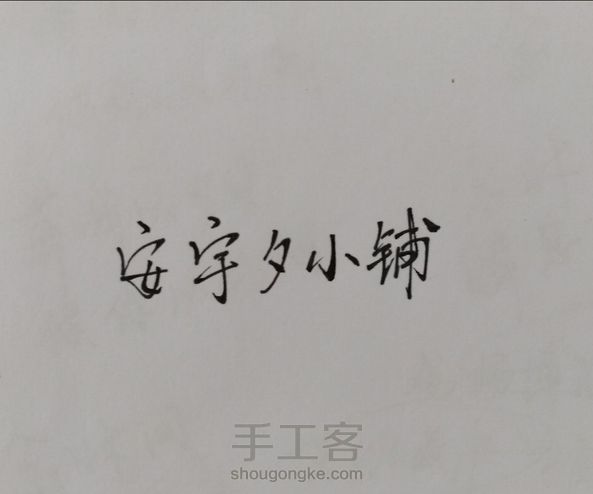 安宇夕小铺
手工客
shougongke.com